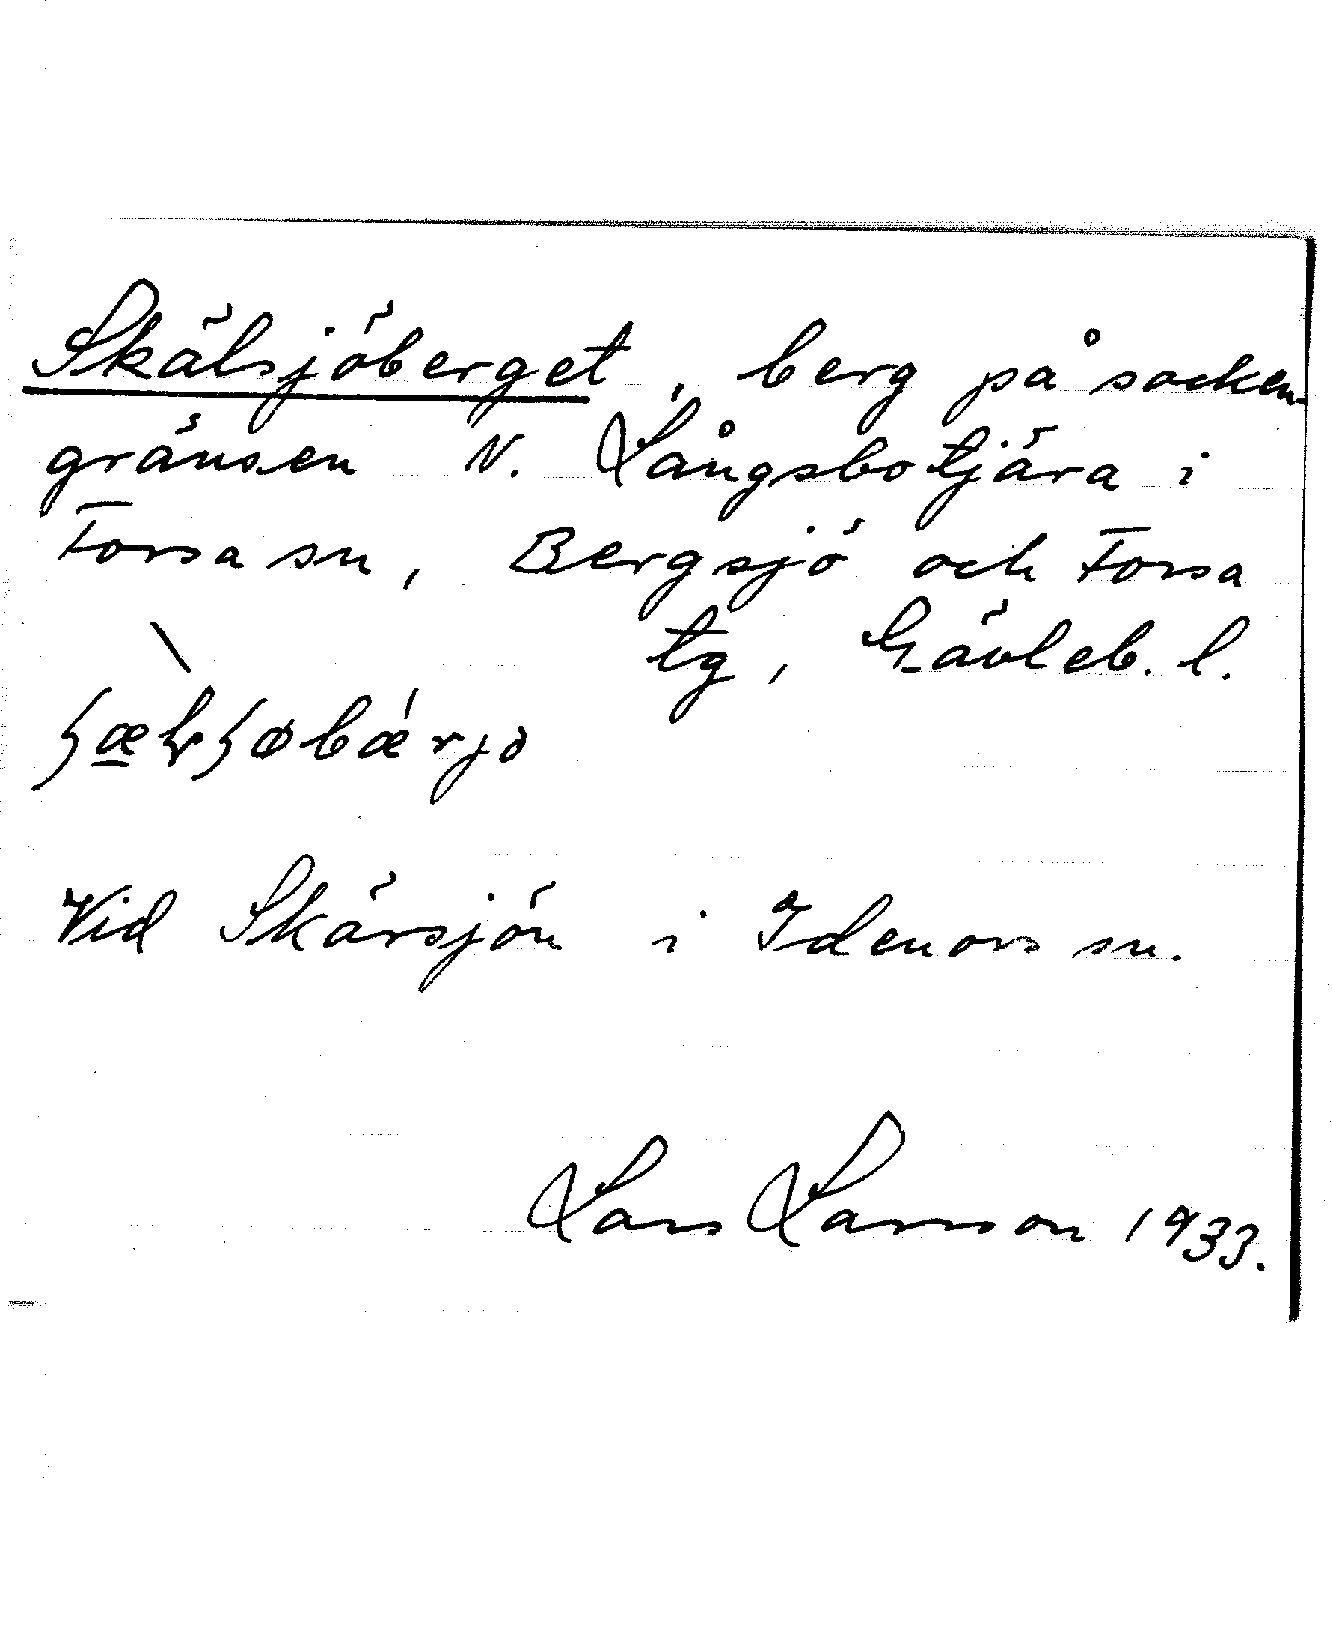 Skälsjöberget, berg på socken-
gränsen N. Långsbotjära i
Forsa sn, Bergsjö och Forsa
tg, Gävleb. l.
Vid Skärsjön i Idenors sn.
Lars Larsson 1933.